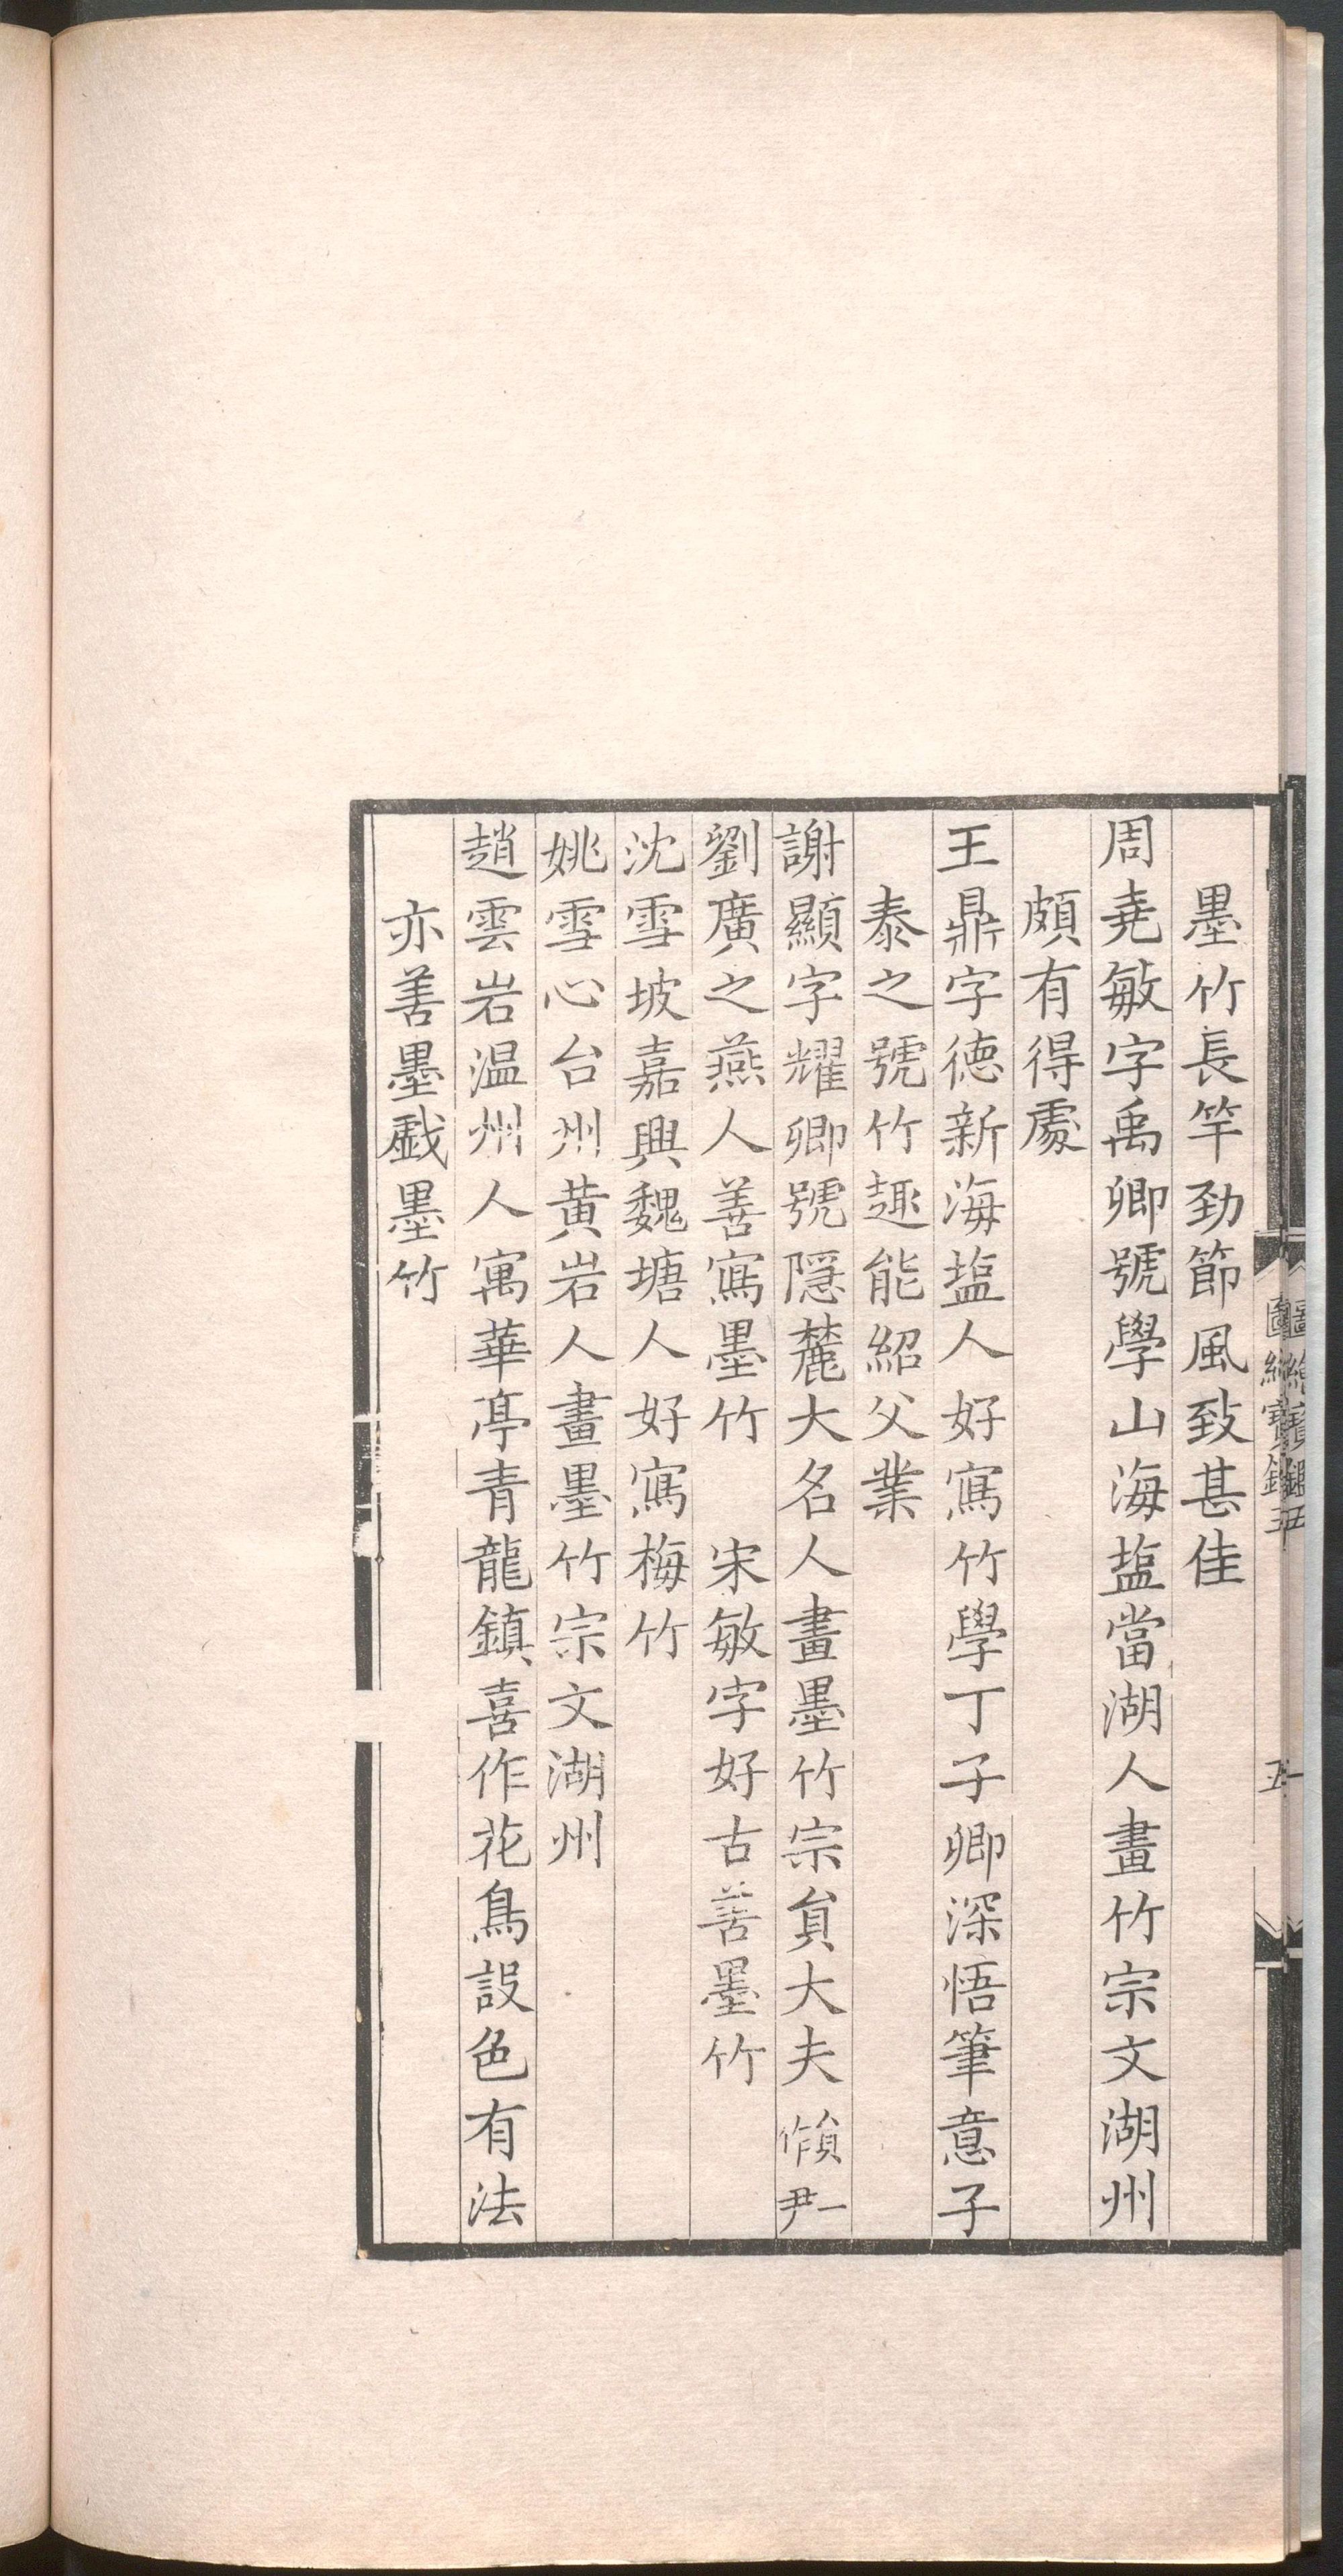 墨竹長竿勁節風致甚佳
周堯敏字禹卿號學山海塩當湖人畫竹宗文湖州
頗有得處
王鼎字德新海塩人好寫竹學丁子卿深悟筆意子
泰之號竹趣能紹父業
謝顯字耀卿號隱麓大名人畫墨竹宗貟大夫 貟一作尹
劉廣之燕人善寫墨竹 宋敏字好古善墨竹
沈雪坡嘉興魏塘人好寫梅竹
姚雪心台州黃岩人畫墨竹宗文湖州
趙雲岩温州人寓華亭青龍鎮喜作花鳥設色有法
亦善墨戱墨竹
圖繪寶鑑五